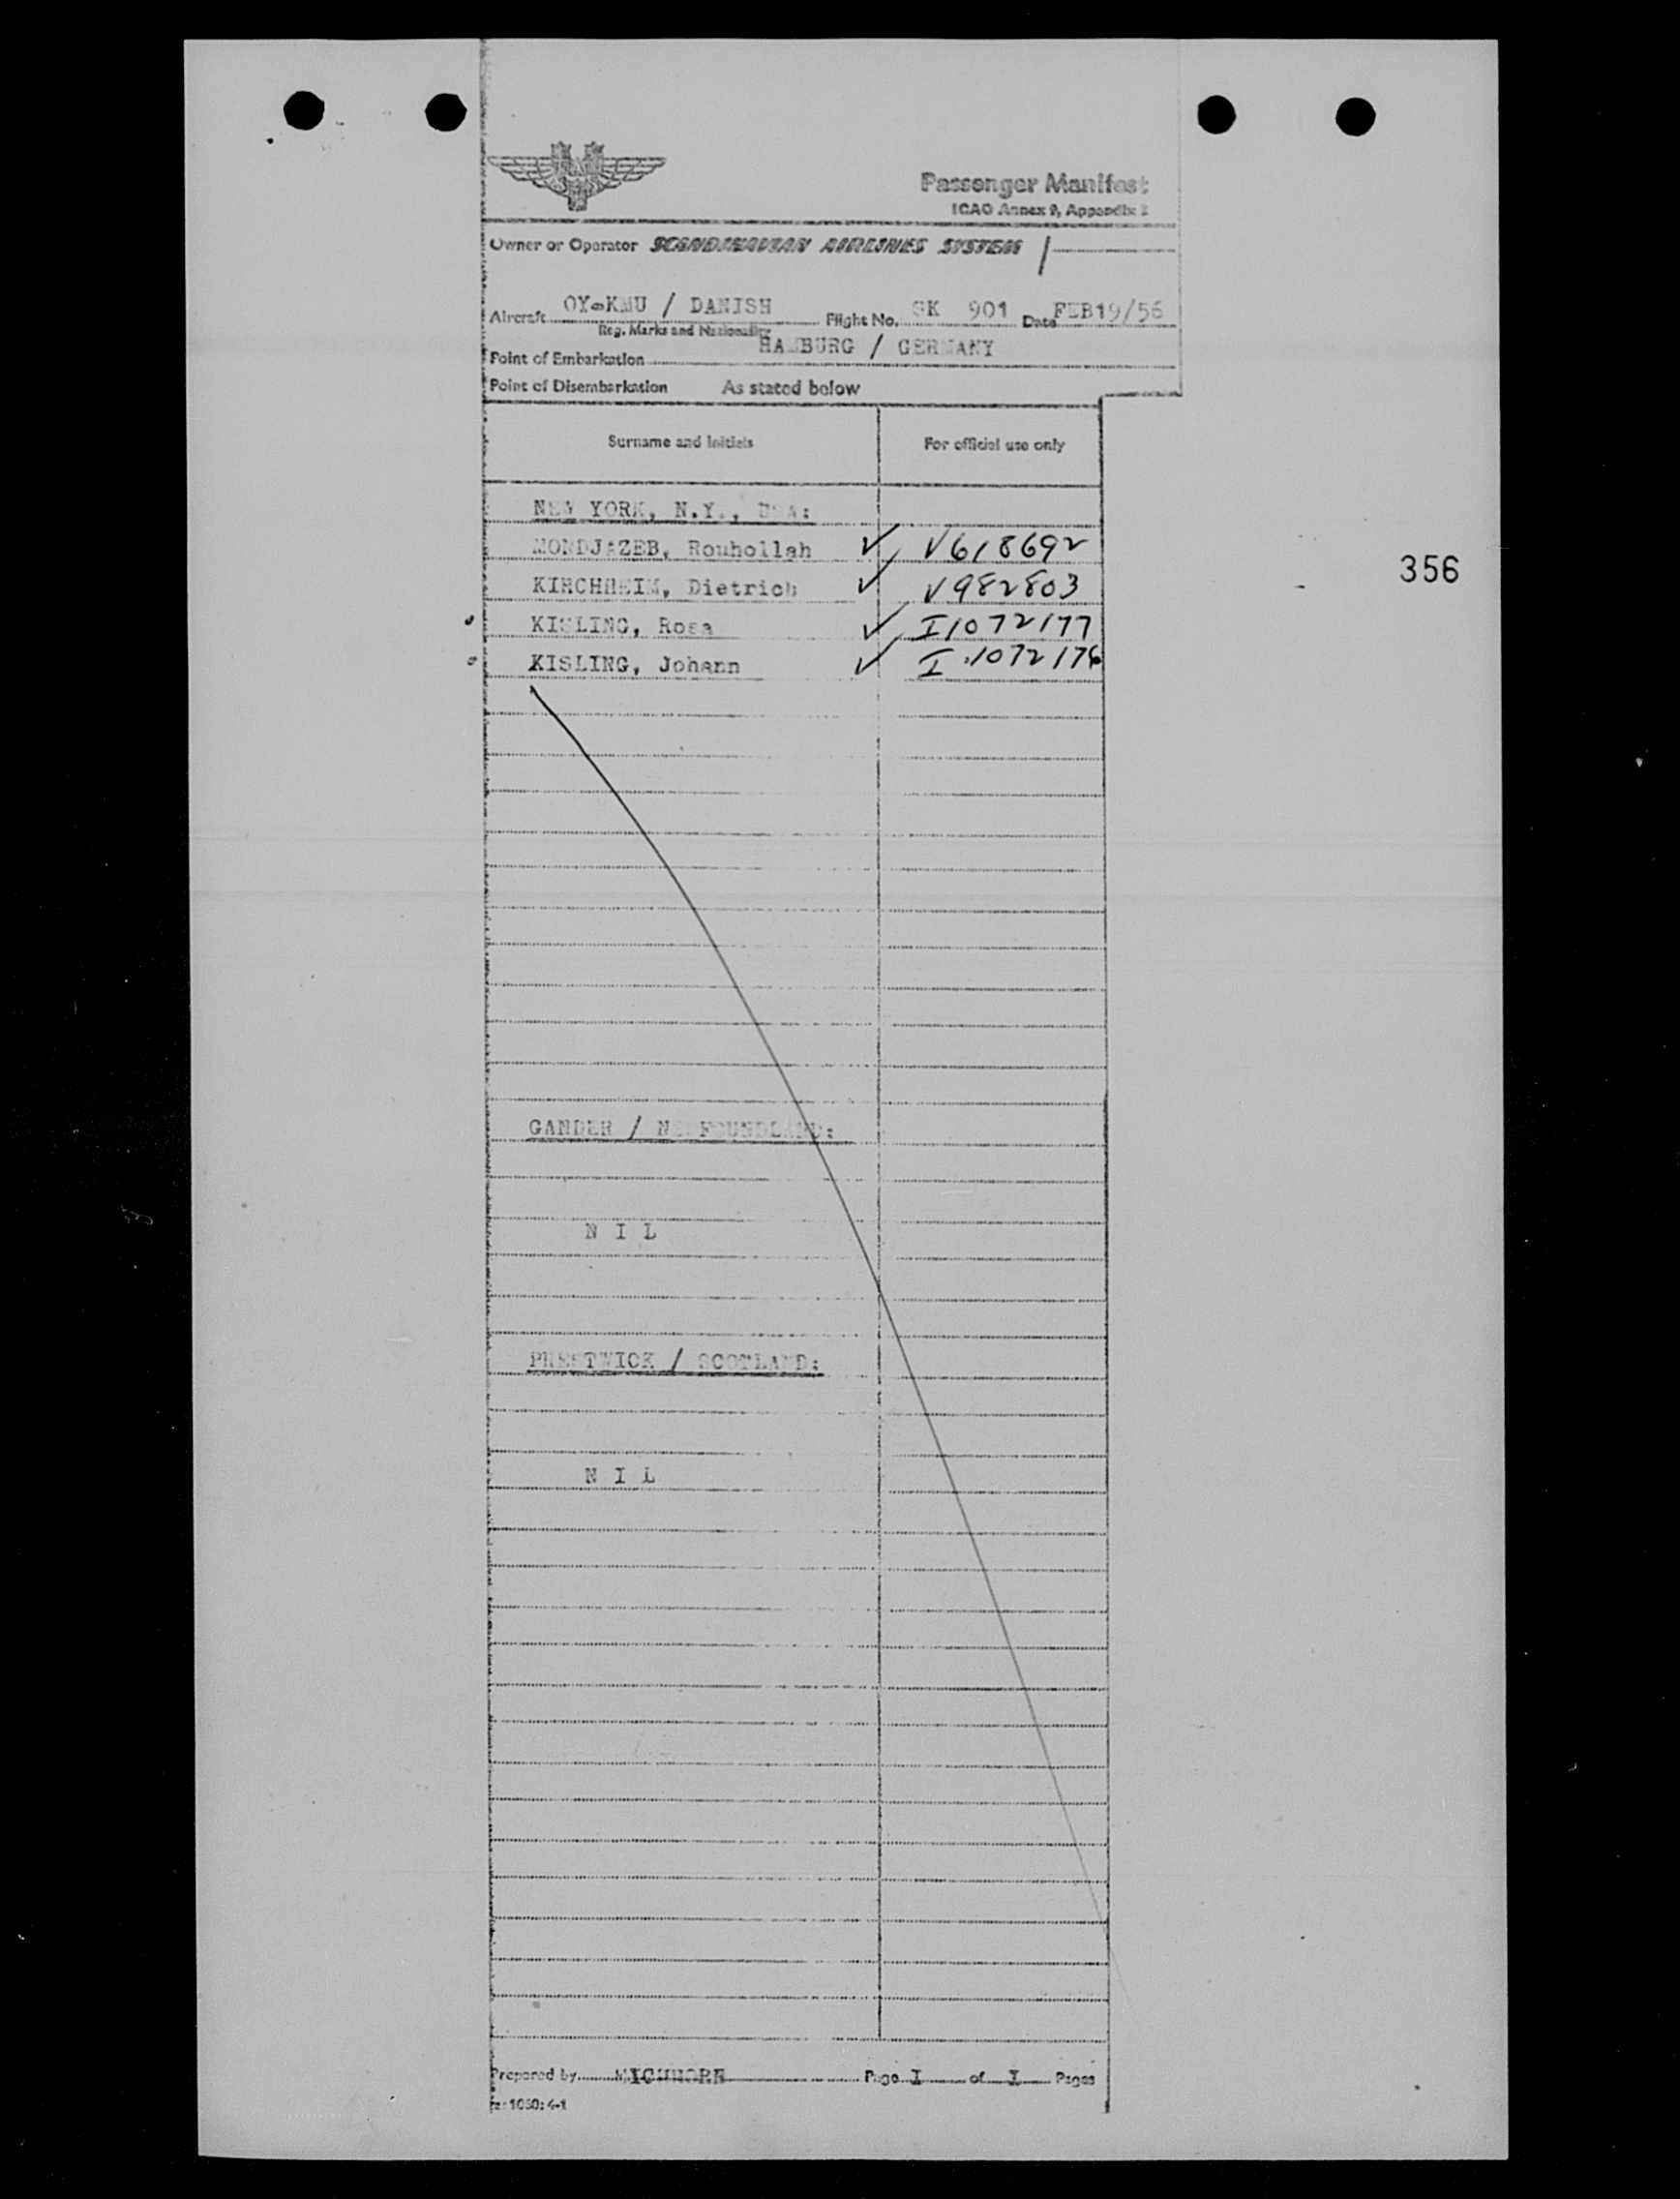 Passenger Manifest
ICAO Annex 9, Appendix
Owner or Operator SCANDINAVIAN AIRLINES SYSTEM
Aircraft OY-KMU / DANISH Flight No. SK 901 Date FEB19/56
Reg. Marks and Nationality
Point of Embarkation HAMBURG / GERMANY
Point of Disembarkation As stated below
Surname and Initials For official use only
NEW YORK, N.Y., USA:
MONDJAZEB, Rouhollah ✓ V618692
KIRCHHEIM, Dietrich ✓ V982803
356
KISLING, Rosa ✓ I1072177
KISLING, Johann ✓ I 1072176
GANDER / NEWFOUNDLAND:
N I L
PRESTWICK / SCOTLAND:
N I L
Prepared by Page I of I Pages
1050:4-1